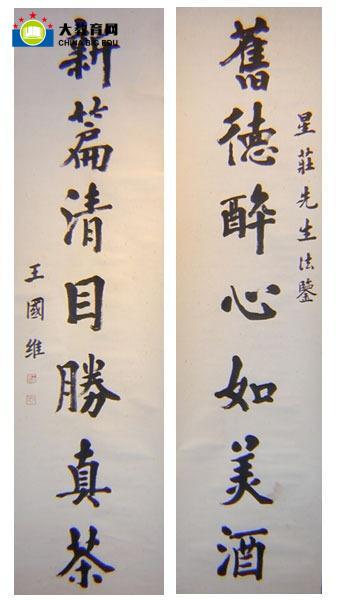 大教育网
CHINA BIG EDU
星莊先生法鑒
舊德醉心如美酒
新篇清目勝真茶
王國維